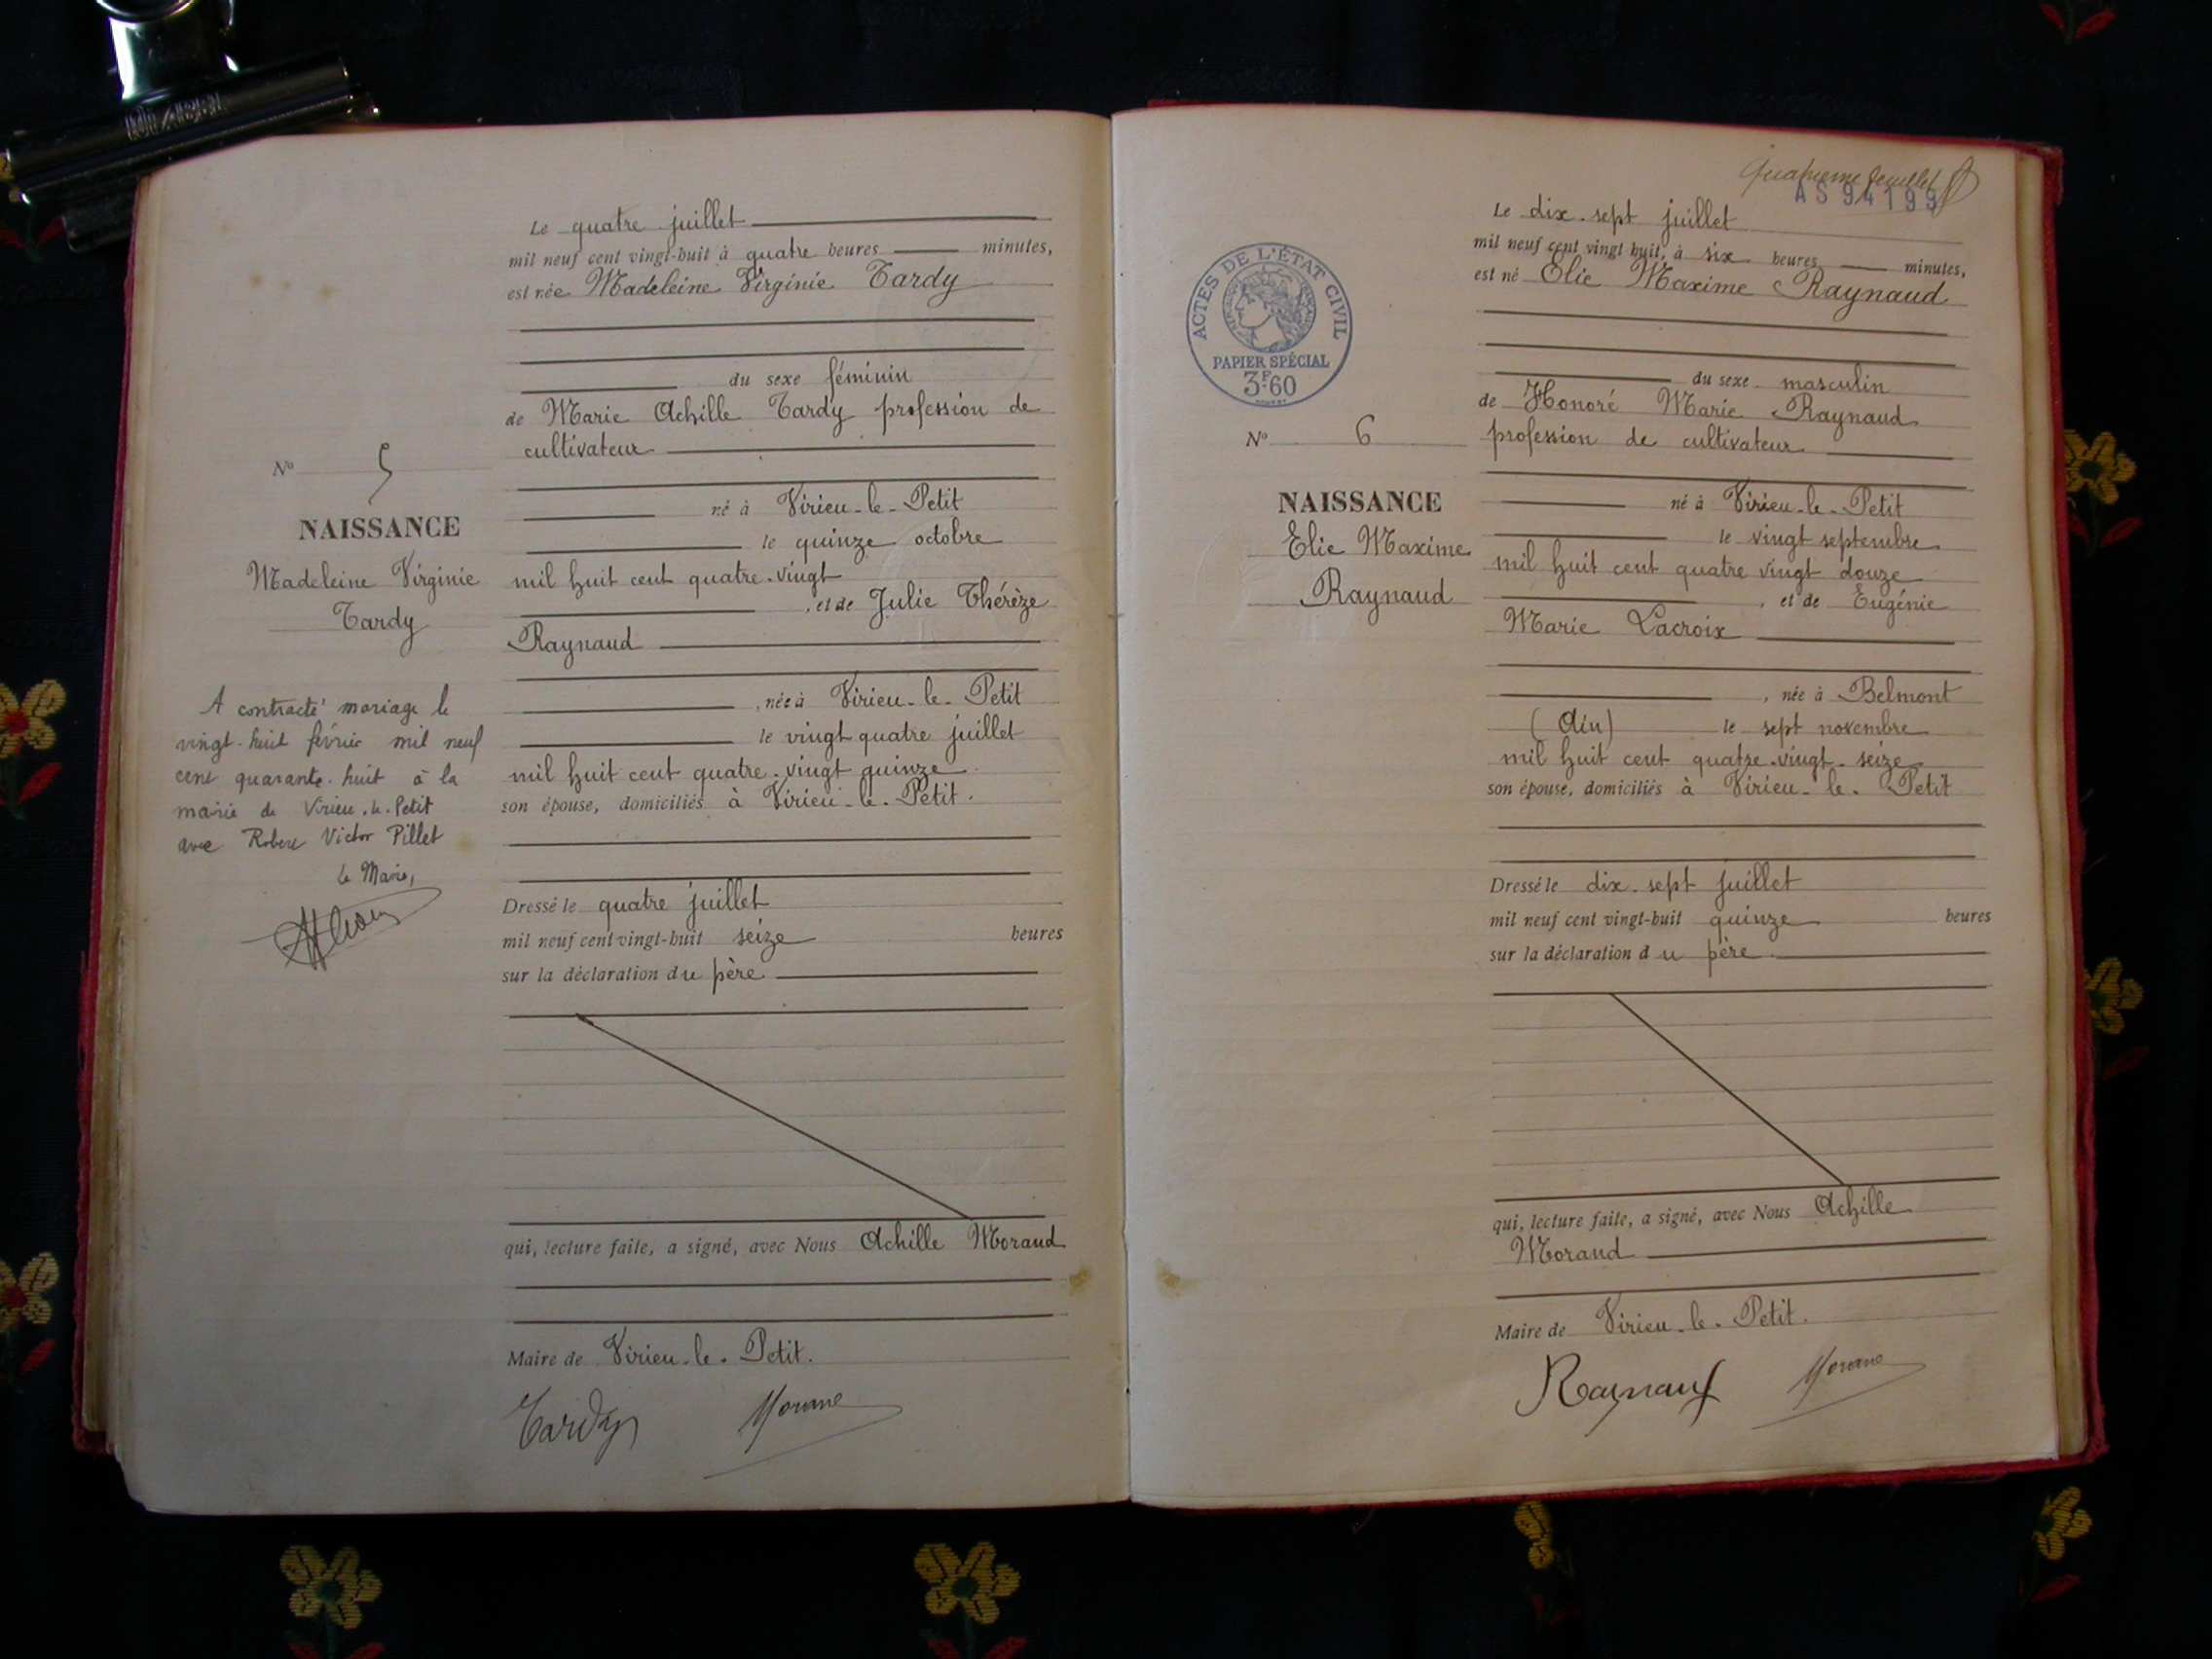 Le quatre juillet
mil neuf cent vingt-huit à quatre heures minutes,
est née Madeleine Virginie Tardy
du sexe féminin
de Marie Achille Tardy profession de
cultivateur
né à Virieu-le-Petit
le quinze octobre
mil huit cent quatre-vingt
, et de Julie Thérèze
Raynaud
, née à Virieu-le-Petit
le vingt quatre juillet
mil huit cent quatre-vingt quinze
son épouse, domiciliés à Virieu-le-Petit.
Dressé le quatre juillet
mil neuf cent vingt-huit seize heures
sur la déclaration du père
qui, lecture faite, a signé, avec Nous Achille Morand
Maire de Virieu-le-Petit.
Tardy
N° 5
NAISSANCE
Madeleine Virginie
Tardy
A contracté mariage le
vingt-huit février mil neuf
cent quarante-huit à la
mairie de Virieu-le-Petit
avec Robert Victor Pillet
Le Maire,
Quatrième feuillet
AS 94199
Le dix-sept juillet
mil neuf cent vingt huit, à six heures minutes,
est né Elie Maxime Raynaud
du sexe masculin
de Honoré Marie Raynaud
profession de cultivateur
né à Virieu-le-Petit
le vingt septembre
mil huit cent quatre vingt douze
, et de Eugénie
Marie Lacroix
, née à Belmont
(Ain) le sept novembre
mil huit cent quatre-vingt-seize
son épouse, domiciliés à Virieu-le-Petit
Dressé le dix-sept juillet
mil neuf cent vingt-huit quinze heures
sur la déclaration du père
qui, lecture faite, a signé, avec Nous Achille
Morand
Maire de Virieu-le-Petit.
Raynaud
ACTES DE L'ÉTAT CIVIL
PAPIER SPÉCIAL
3F.60
N° 6
NAISSANCE
Elie Maxime
Raynaud